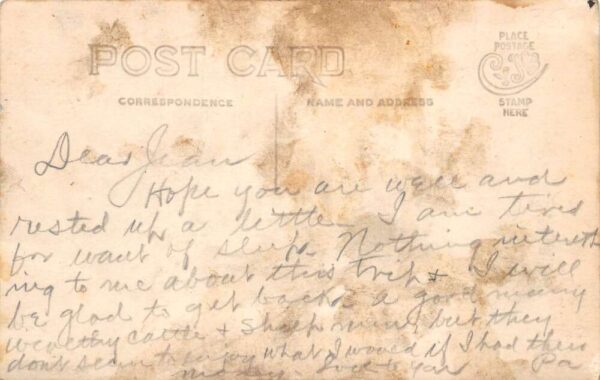 POST CARD
PLACE
POSTAGE
STAMP
HERE
CORRESPONDENCE
NAME AND ADDRESS
Dear Jean
Hope you are well and
rested up a little. I am tired
for want of sleep. Nothing interest
ing to me about this trip & I will
be glad to get back. a good many
wealthy cattle & sheep men, but they
don't seem to enjoy what I would if I had their
money. Love to you Pa